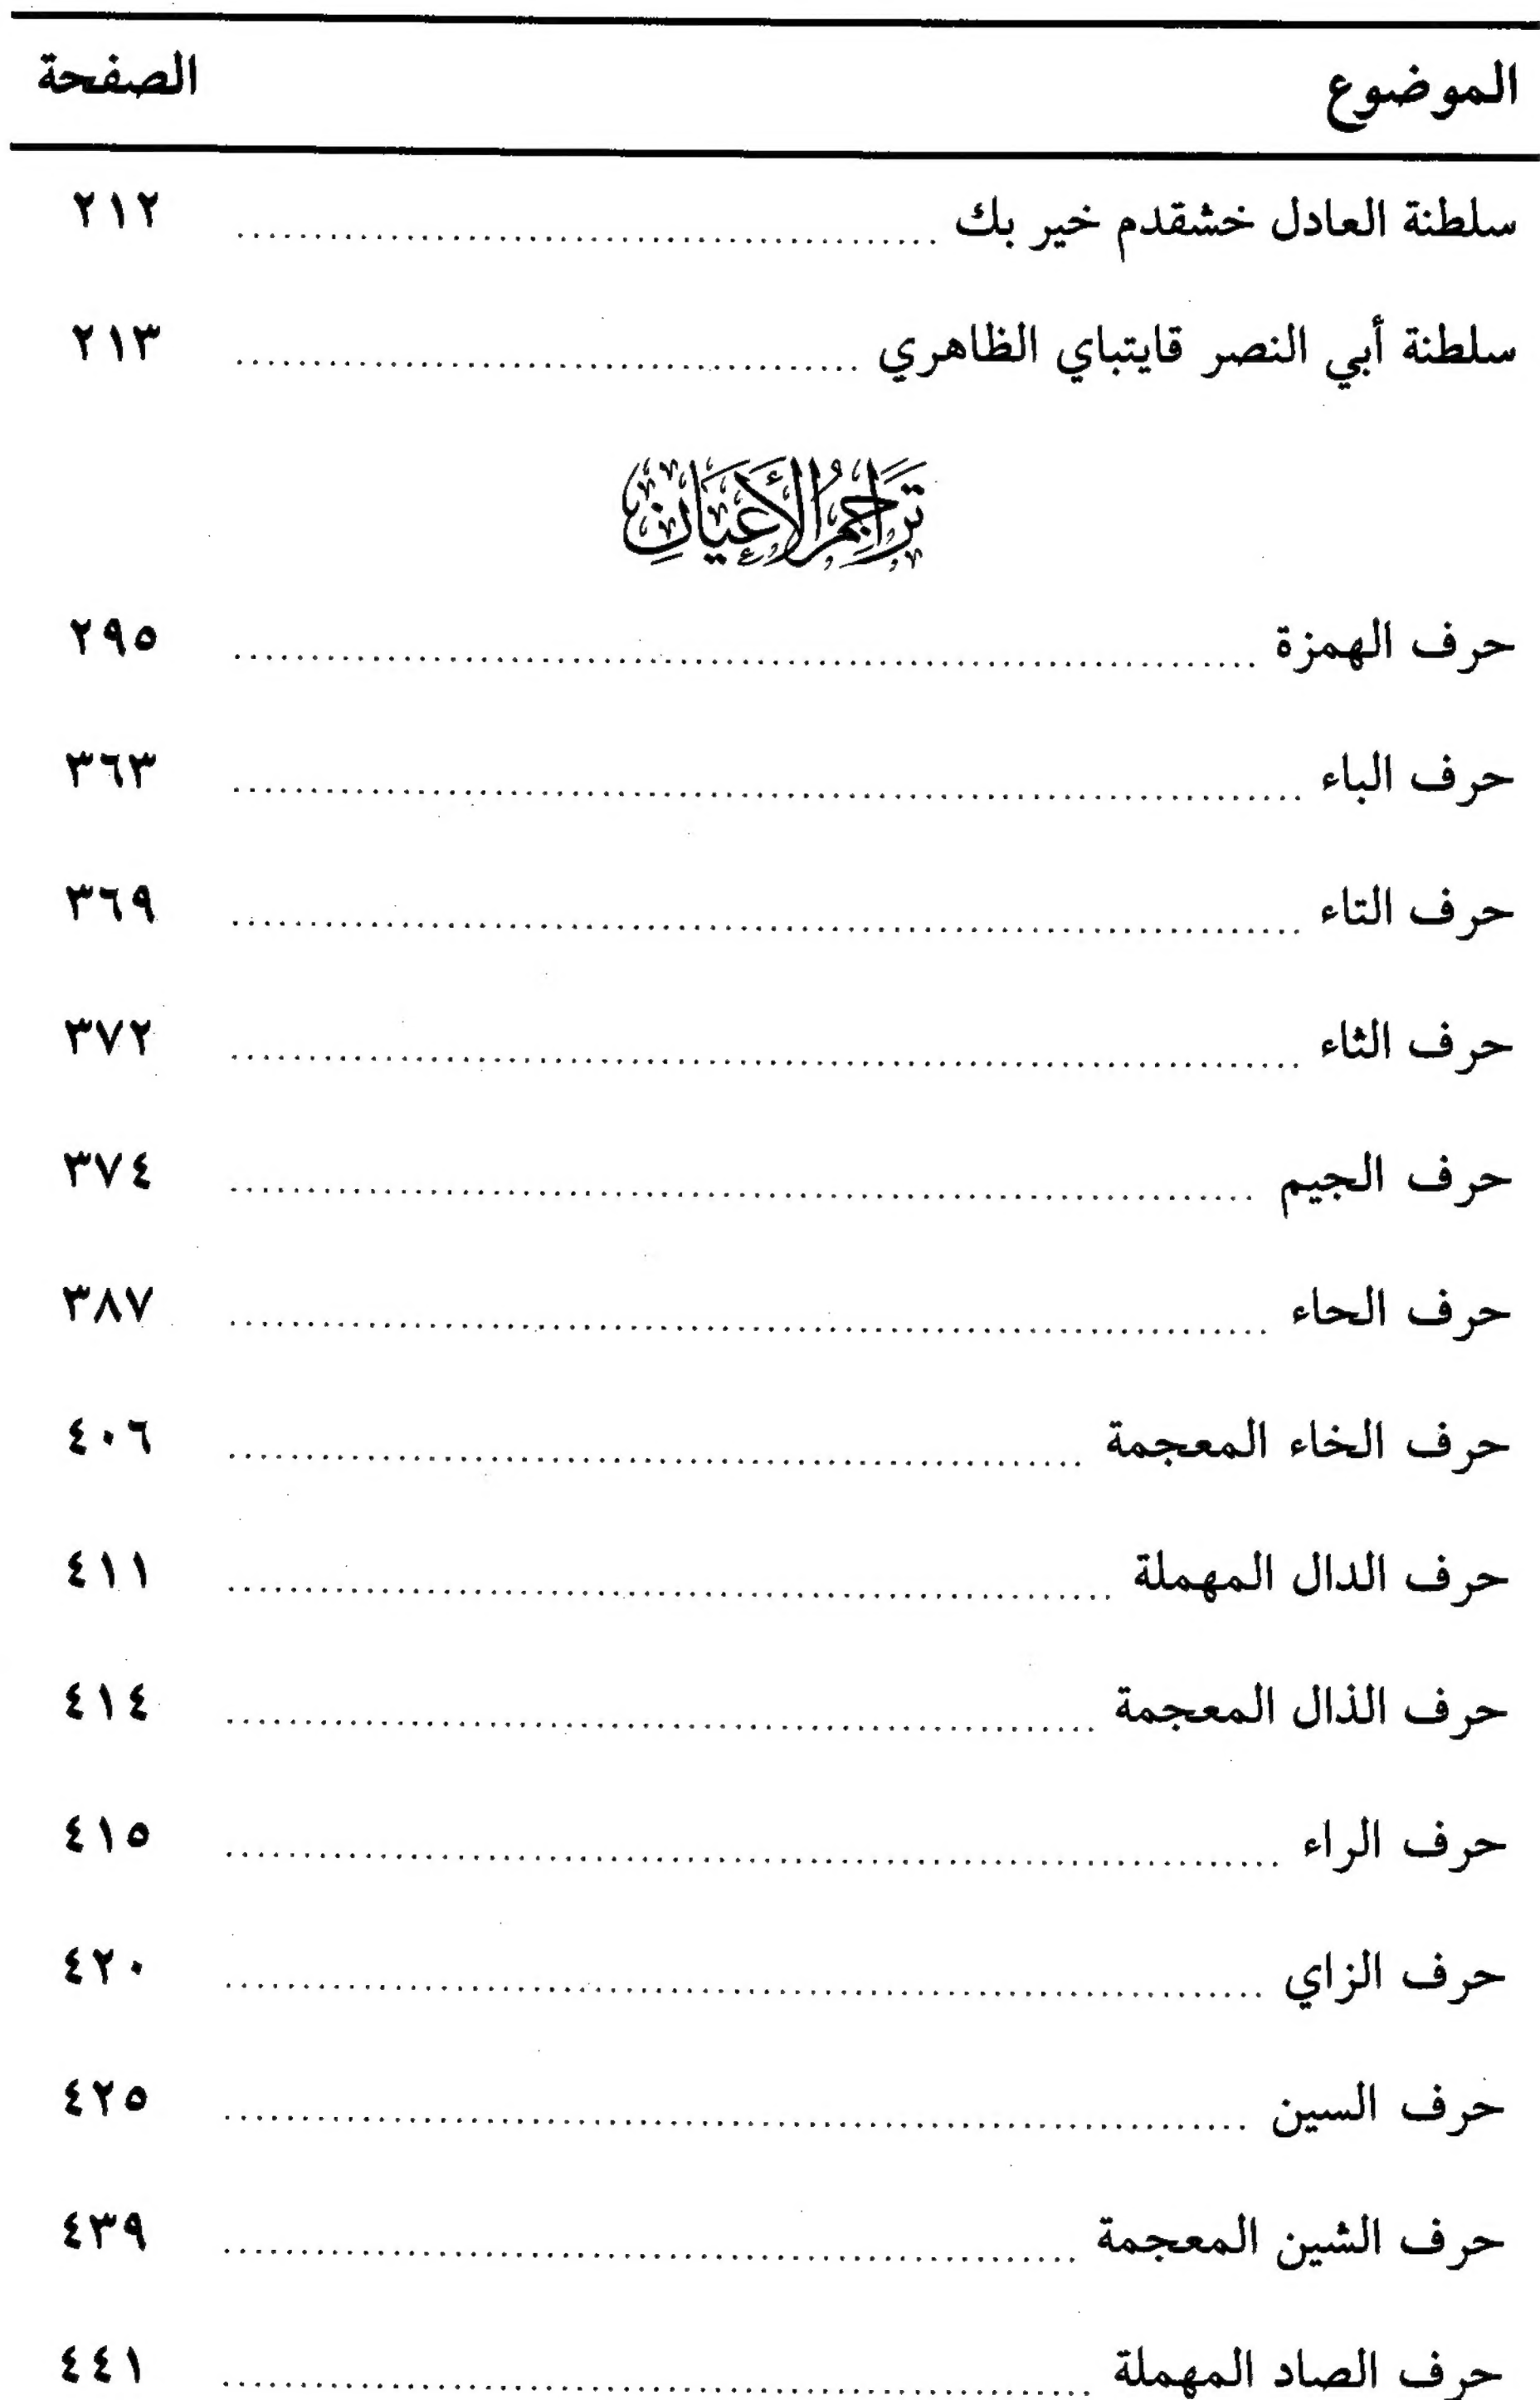 الموضوع الصفحة
سلطنة العادل خشقدم خير بك ٢١٢
سلطنة أبي النصر قايتباي الظاهري ٢١٣
تَرَاجِمُ الأَعْيَانِ
حرف الهمزة ٢٩٥
حرف الباء ٣٦٣
حرف التاء ٣٦٩
حرف الثاء ٣٧٢
حرف الجيم ٣٧٤
حرف الحاء ٣٨٧
حرف الخاء المعجمة ٤٠٦
حرف الدال المهملة ٤١١
حرف الذال المعجمة ٤١٤
حرف الراء ٤١٥
حرف الزاي ٤٢٠
حرف السين ٤٢٥
حرف الشين المعجمة ٤٣٩
حرف الصاد المهملة ٤٤١